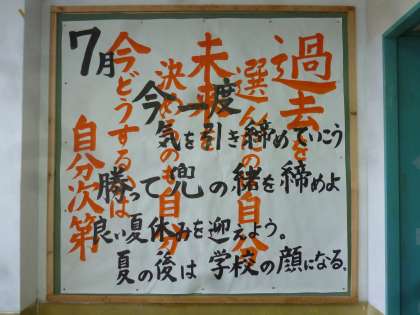 7月
今一度
気を引き締めていこう
勝って兜の緒を締めよ
良い夏休みを迎えよう。
夏の後は 学校の顔になる。
過去を
選んだのも自分
未来を
決めるのも自分
今どうするかは
自分次第